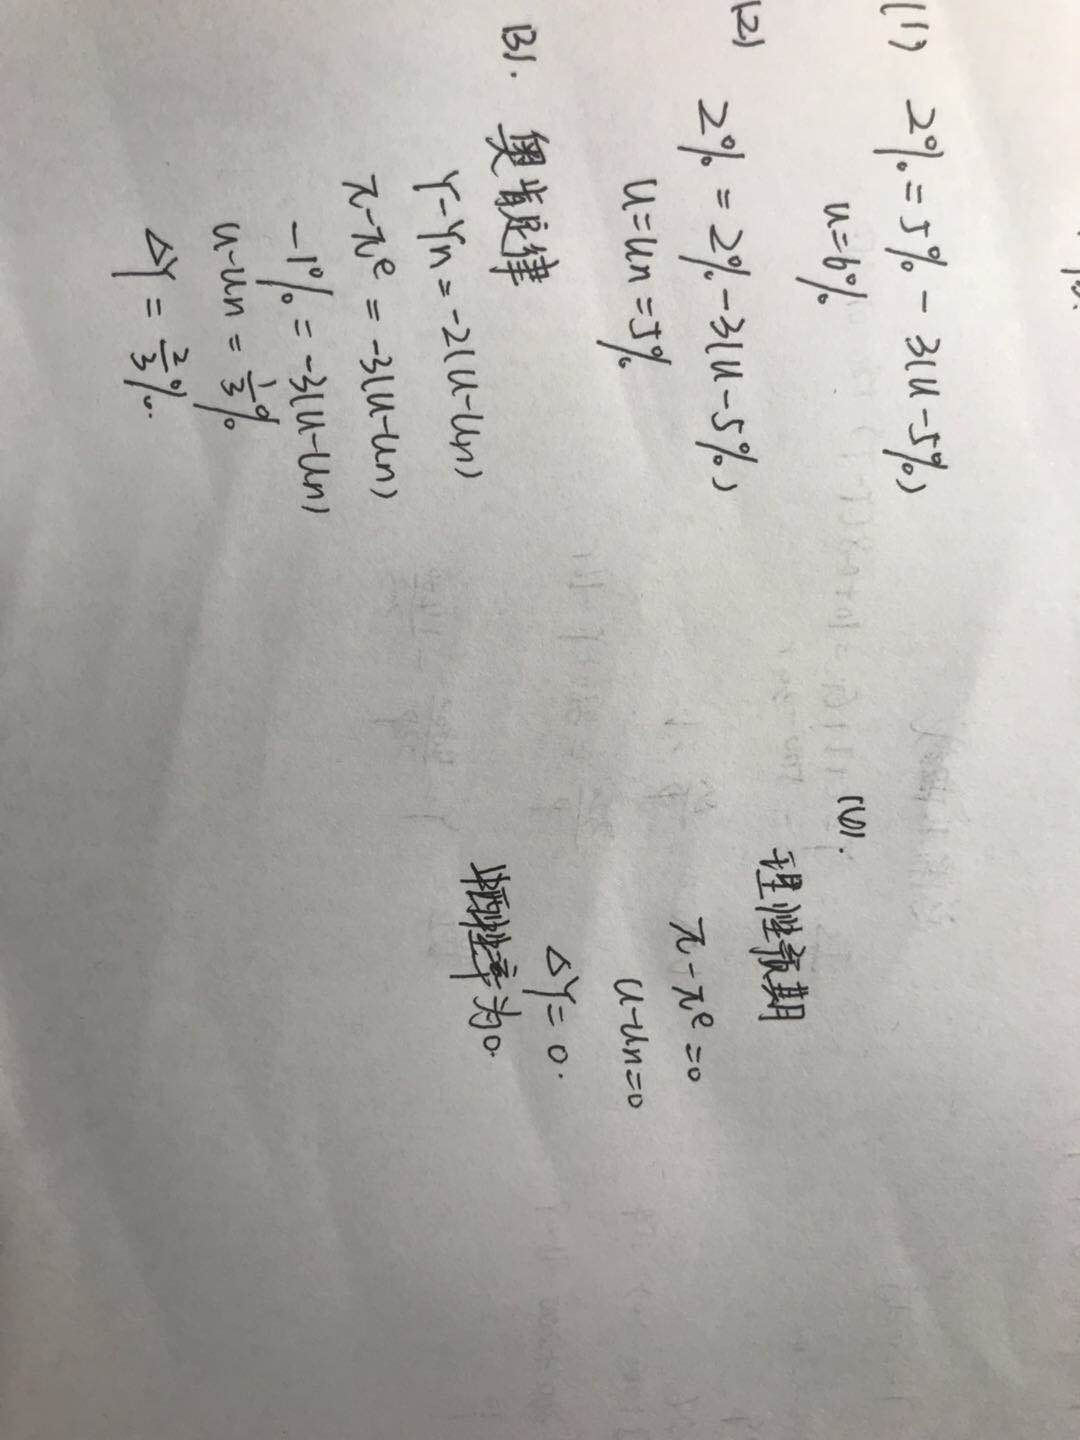 (1) 2% = 5% - 3(u-5%)
u=6%
(2) 2% = 2% - 3(u-5%)
u=un=5%
(3). 奥肯定律
Y-Yn=-2(u-un)
π-πe = -3(u-un)
-1% = -3(u-un)
u-un=1/3%
ΔY = 2/3%.
(4).
理性预期
π-πe=0
u-un=0
ΔY=0.
牺牲率为0.